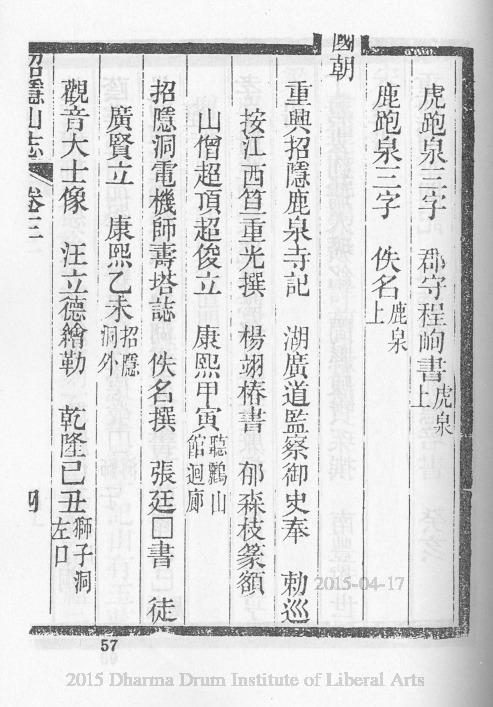 虎跑泉三字　郡守程峋書虎泉上
鹿跑泉三字　佚名鹿泉上
國朝
重興招隱鹿泉寺記　湖廣道監察御史奉　勅巡
按江西笪重光撰　楊翊椿書　郁森枝篆額
山僧超頂超俊立　康熙甲寅聽鸝山館迴廊
招隱洞電機師壽塔誌　佚名撰　張廷□書　徒
廣賢立　康熙乙未招隱洞外
觀音大士像　汪立德繪勒　乾隆己丑獅子洞左口
招隱山志　卷三　四
57
2015-04-17
2015 Dharma Drum Institute of Liberal Arts